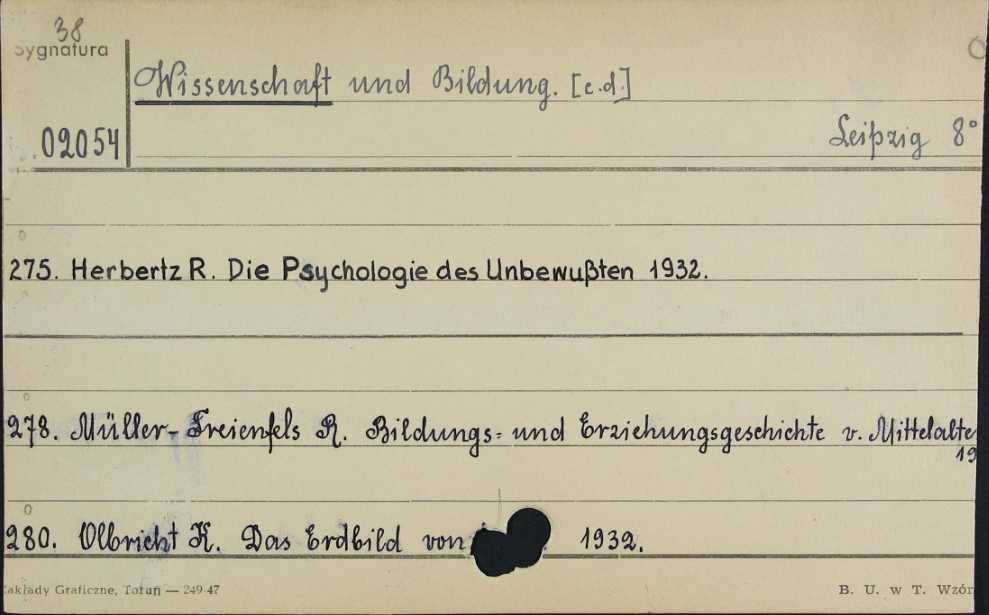 38
Sygnatura
Wissenschaft und Bildung. [c.d.]
02054
Leipzig 8°
275. Herbertz R. Die Psychologie des Unbewußten 1932.
278. Müller-Freienfels R. Bildungs= und Erziehungsgeschichte v. Mittelalte
19
280. Olbricht K. Das Erdbild von 1932.
Zakłady Graficzne, Toruń — 249-47
B. U. w T. Wzór